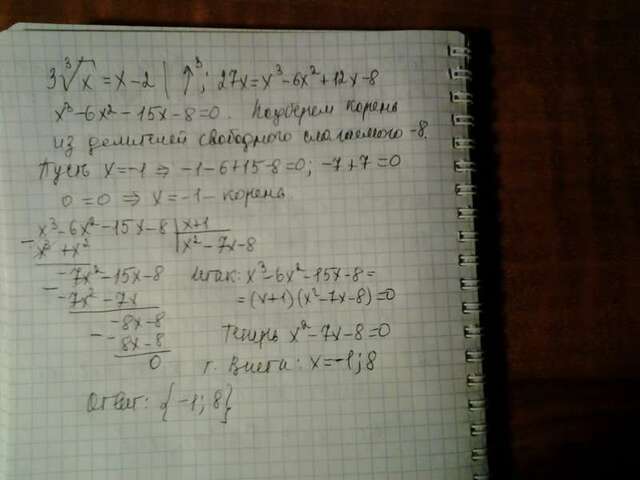 3∛x = x-2 | ↑³; 27x = x³-6x²+12x-8
x³-6x²-15x-8=0. Подберем корень
из делителей свободного слагаемого -8.
Пусть x=-1 ⇒ -1-6+15-8=0; -7+7=0
0=0 ⇒ x=-1- корень
x³-6x²-15x-8 | x+1
- x³+x² | x²-7x-8
-7x²-15x-8
- -7x²-7x
-8x-8
- -8x-8
0
Итак: x³-6x²-15x-8=
=(x+1)(x²-7x-8)=0
Теперь x²-7x-8=0
т. Виета: x=-1; 8
Ответ: {-1; 8}